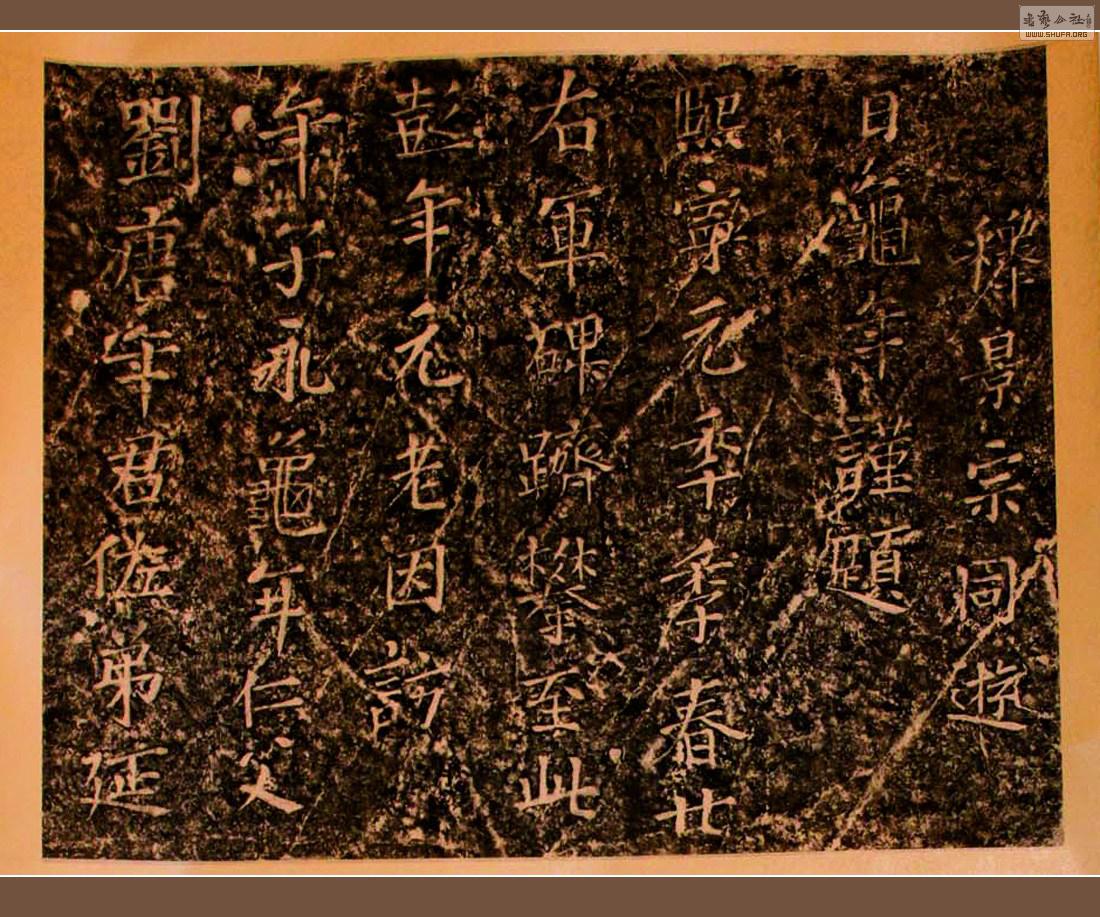 劉唐年君佐弟延
年子永龜年仁父
彭年元老因訪
右軍碑躋攀至此
熙寧元秊季春廿
日龜年謹題
釋景宗同遊
書藝公社
WWW.SHUFA.ORG